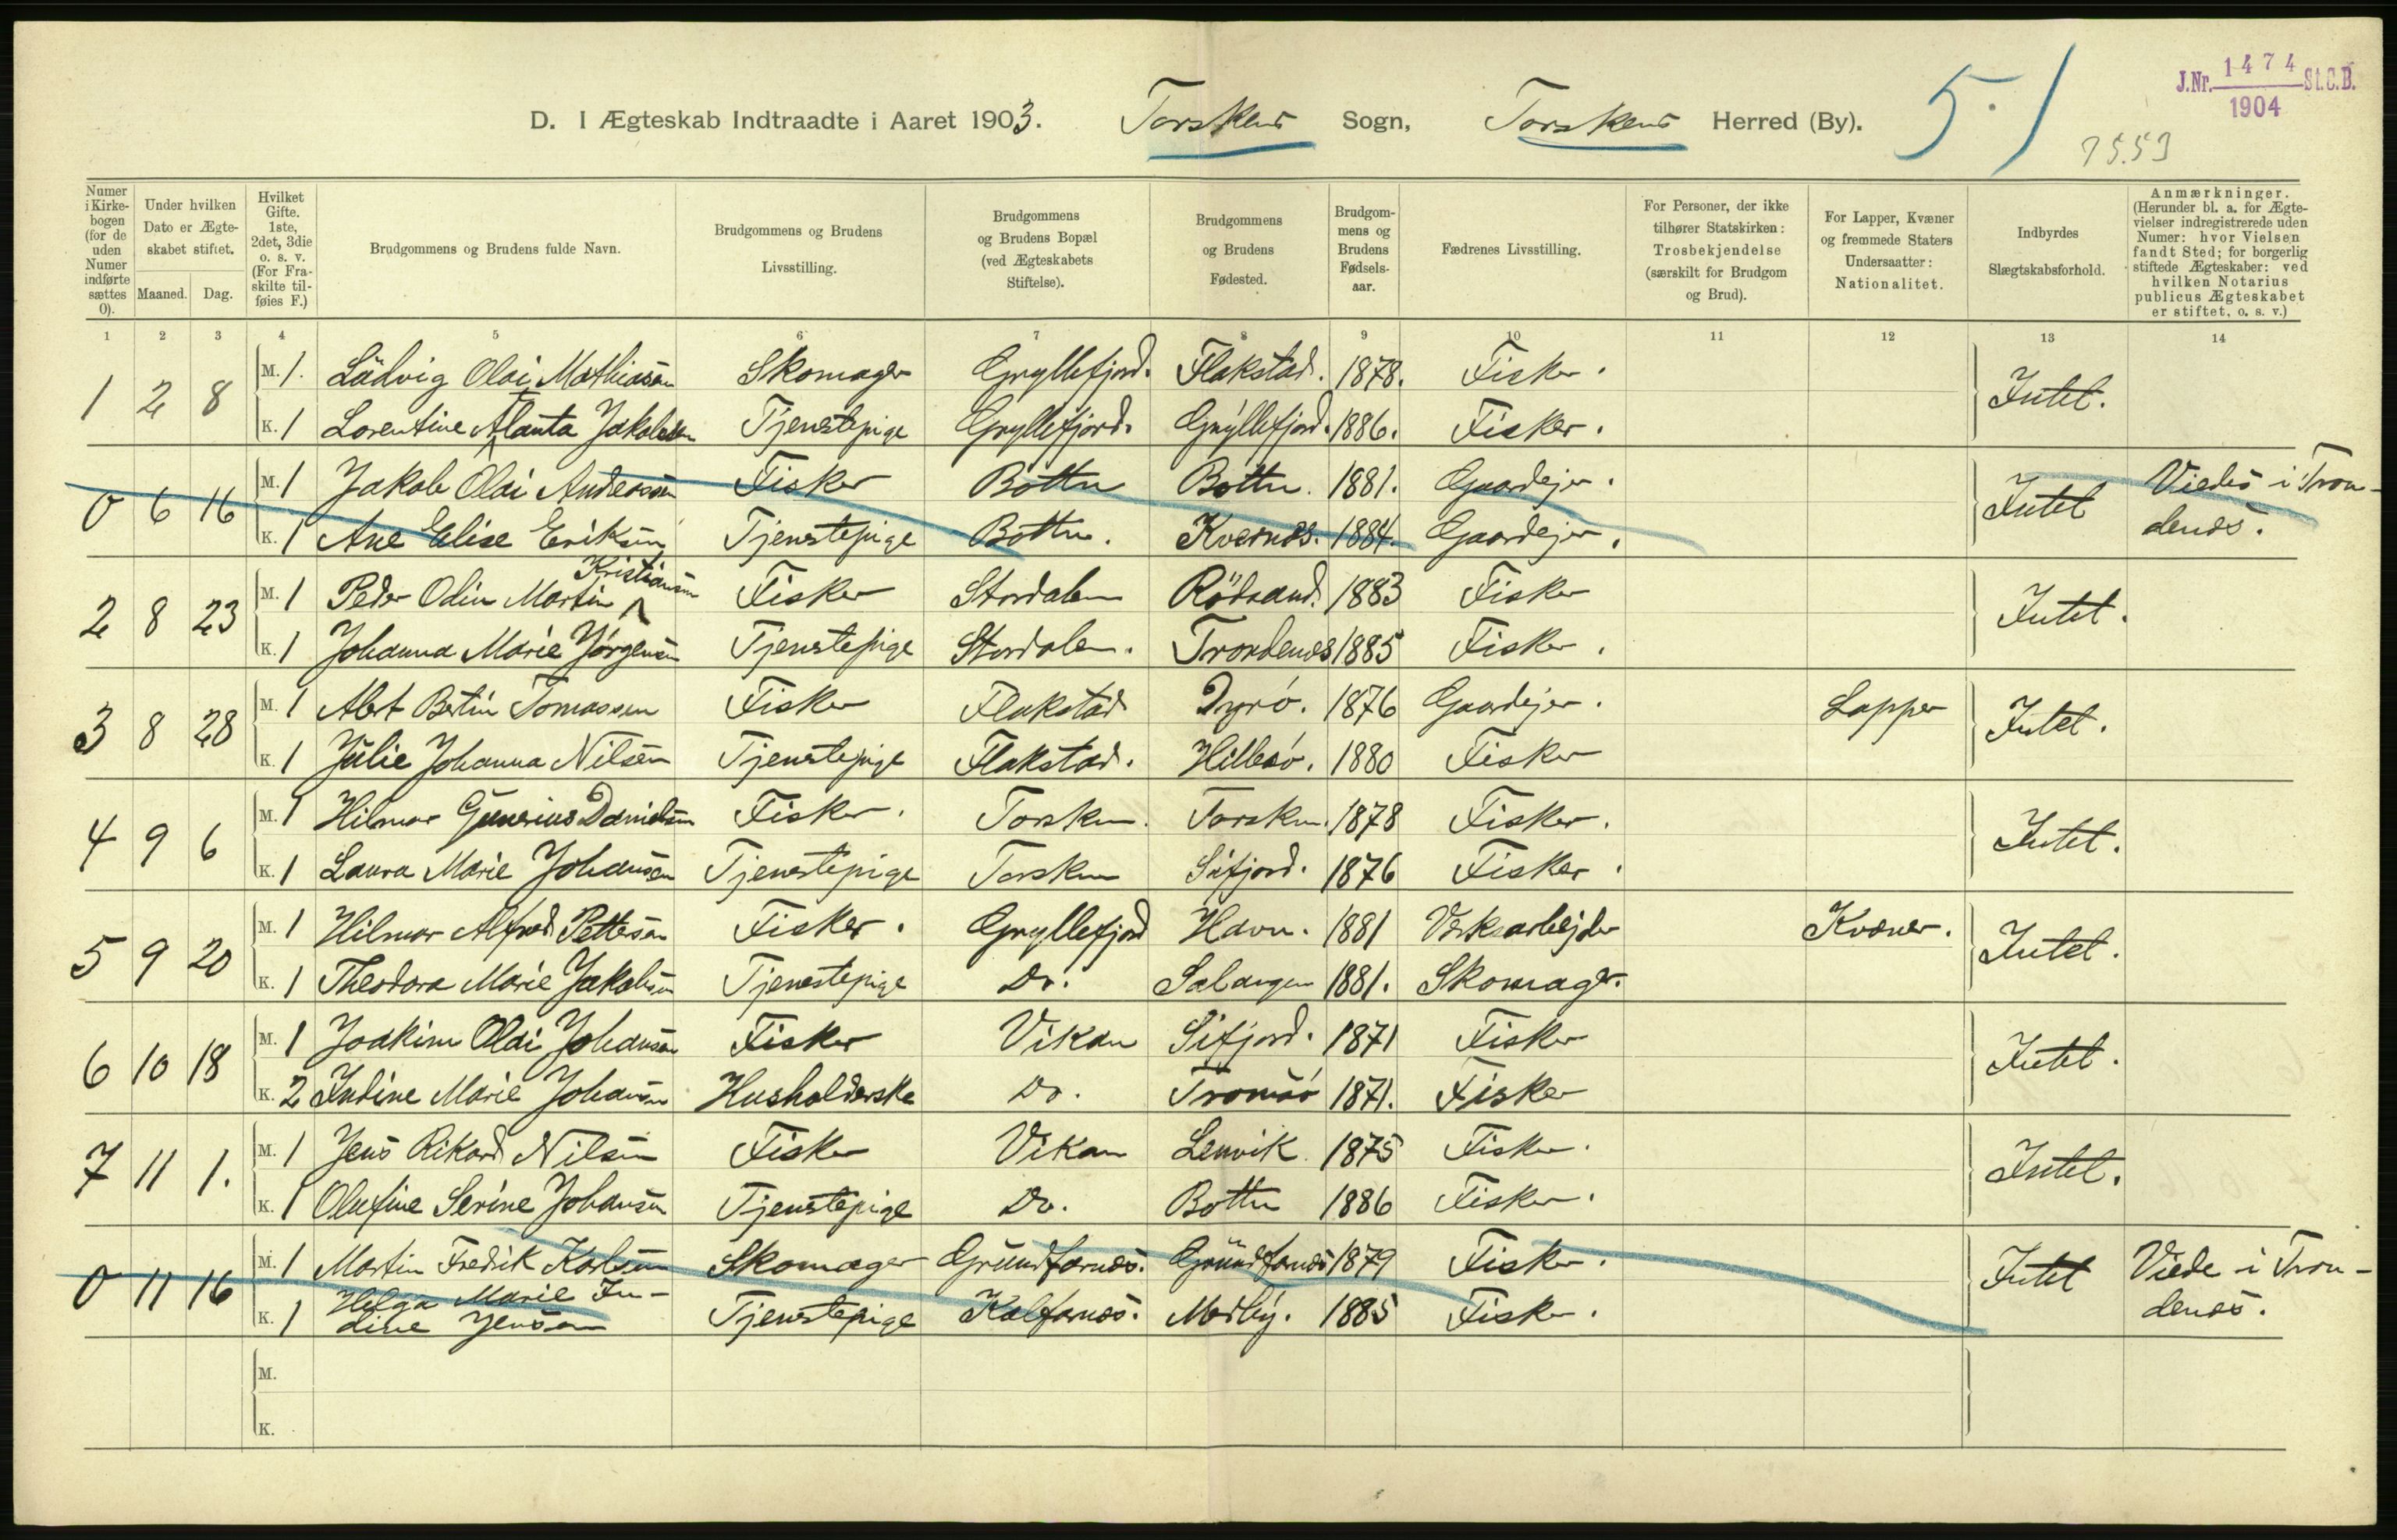 D. I Ægteskab Indtraadte i Aaret 1903. Torskens Sogn, Torskens Herred (By). 5.
J.Nr. 1474 St.C.B.
1904
Numer i Kirkebogen (for de uden Numer indførte sættes 0).
Under hvilken Dato er Ægteskabet stiftet.
Maaned. Dag.
Hvilket Gifte. 1ste, 2det, 3die o. s. v. (For Fraskilte tilføies F.)
Brudgommens og Brudens fulde Navn.
Brudgommens og Brudens Livsstilling.
Brudgommens og Brudens Bopæl (ved Ægteskabets Stiftelse).
Brudgommens og Brudens Fødested.
Brudgommens og Brudens Fødselsaar.
Fædrenes Livsstilling.
For Personer, der ikke tilhører Statskirken: Trosbekjendelse (særskilt for Brudgom og Brud).
For Lapper, Kvæner og fremmede Staters Undersaatter: Nationalitet.
Indbyrdes Slægtskabsforhold.
Anmærkninger. (Herunder bl. a. for Ægtevielser indregistrerede uden Numer: hvor Vielsen fandt Sted; for borgerlig stiftede Ægteskaber: ved hvilken Notarius publicus Ægteskabet er stiftet, o. s. v.)
1 2 3 4 5 6 7 8 9 10 11 12 13 14
1 2 8 M. 1. Ludvig Olai Mathiasen Skomager Gryllefjord. Flakstad. 1878. Fisker. Intet.
K. 1 Lorentine Alanta Jakobsen Tjenestepige Gryllefjord. Gryllefjord. 1886. Fisker.
0 6 16 M. 1 Jakob Olai Andersen Fisker Bottn Bottn. 1881. Gaardejer. Intet Viedes i Trondenes.
K. 1 Ane Elise Eriksen Tjenestepige Bottn. Kvernes. 1884. Gaardejer.
2 8 23 M. 1 Peder Odin Martin Kristiansen Fisker Stordalen Rödsand. 1883 Fisker Intet.
K. 1 Johanna Marie Jørgensen Tjenestepige Stordalen. Trondenes 1885 Fisker.
3 8 28 M. 1 Albert Bertin Tomassen Fisker Flakstad Dyrö. 1876 Gaardejer. Lapper Intet.
K. 1 Julie Johanna Nilsen Tjenestepige Flakstad. Hillesö. 1880 Fisker
4 9 6 M. 1 Hilmar Gunerius Danielsen Fisker. Torsken. Torsken. 1878 Fisker. Intet.
K. 1 Laura Marie Johansen Tjenestepige Torsken Sifjord. 1876 Fisker.
5 9 20 M. 1 Hilmar Alfred Pettersen Fisker. Gryllefjord Havn. 1881 Verkarbejder Kvæner. Intet.
K. 1 Theodora Marie Jakobsen Tjenestepige Do. Salangen 1881. Skomager.
6 10 18 M. 1 Joakim Olai Johansen Fisker Vikan Sifjord. 1871 Fisker Intet.
K. 2 Indine Marie Johansen Husholderske Do. Tromsö 1871. Fisker
7 11 1. M. 1 Jens Rikard Nilsen Fisker Vikan Lenvik 1875 Fisker. Intet.
K. 1 Olufine Serine Johansen Tjenestepige Do. Bottn 1886 Fisker.
0 11 16 M. 1 Martin Fredrik Karlsen Skomager Grundfarnes. Grundfarnes 1879 Fisker. Intet Viede i Trondenes.
K. 1 Helga Marie Indine Jensen Tjenestepige Kalfarnes. Medby. 1885 Fisker.
M.
K.